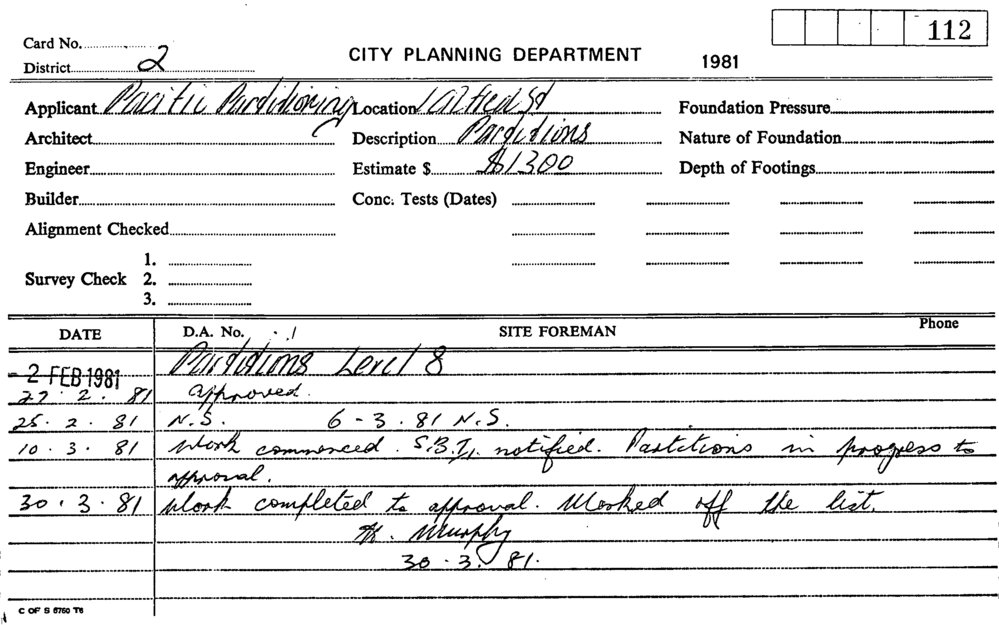 112
Card No.
District 2
CITY PLANNING DEPARTMENT 1981
Applicant Pacific Partitioning Location 1 Alfred St Foundation Pressure
Architect Description Partitions Nature of Foundation
Engineer Estimate $ $1300 Depth of Footings
Builder Conc. Tests (Dates)
Alignment Checked
1.
Survey Check 2.
3.
DATE D.A. No. SITE FOREMAN Phone
Partitions Level 8
- 2 FEB 1981
27. 2. 81 approved.
25. 2. 81 N.S. 6 - 3. 81 N.S.
10. 3. 81 Work commenced. notified. Partitions in progress to
approval.
30. 3. 81 Work completed to approval. Marked off the list.
Murphy
30. 3. 81.
C OF S 6750 T6